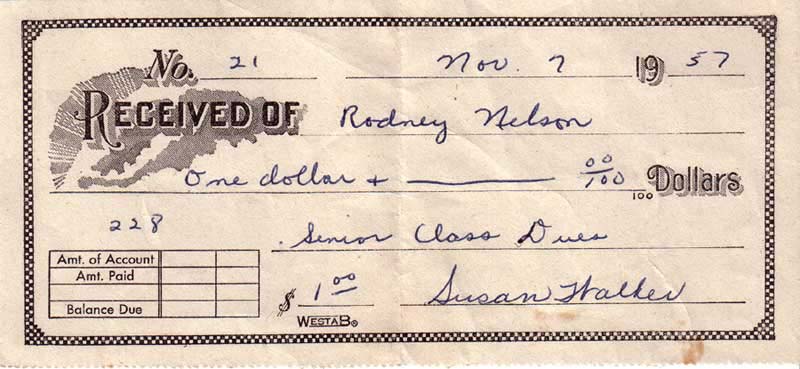 No. 21 Nov. 7 1957
RECEIVED OF Rodney Nelson
One dollar + 00/100 100 Dollars
228 Senior Class Dues
Amt. of Account
Amt. Paid
Balance Due
$ 1.00 Susan Walker
WESTAB®